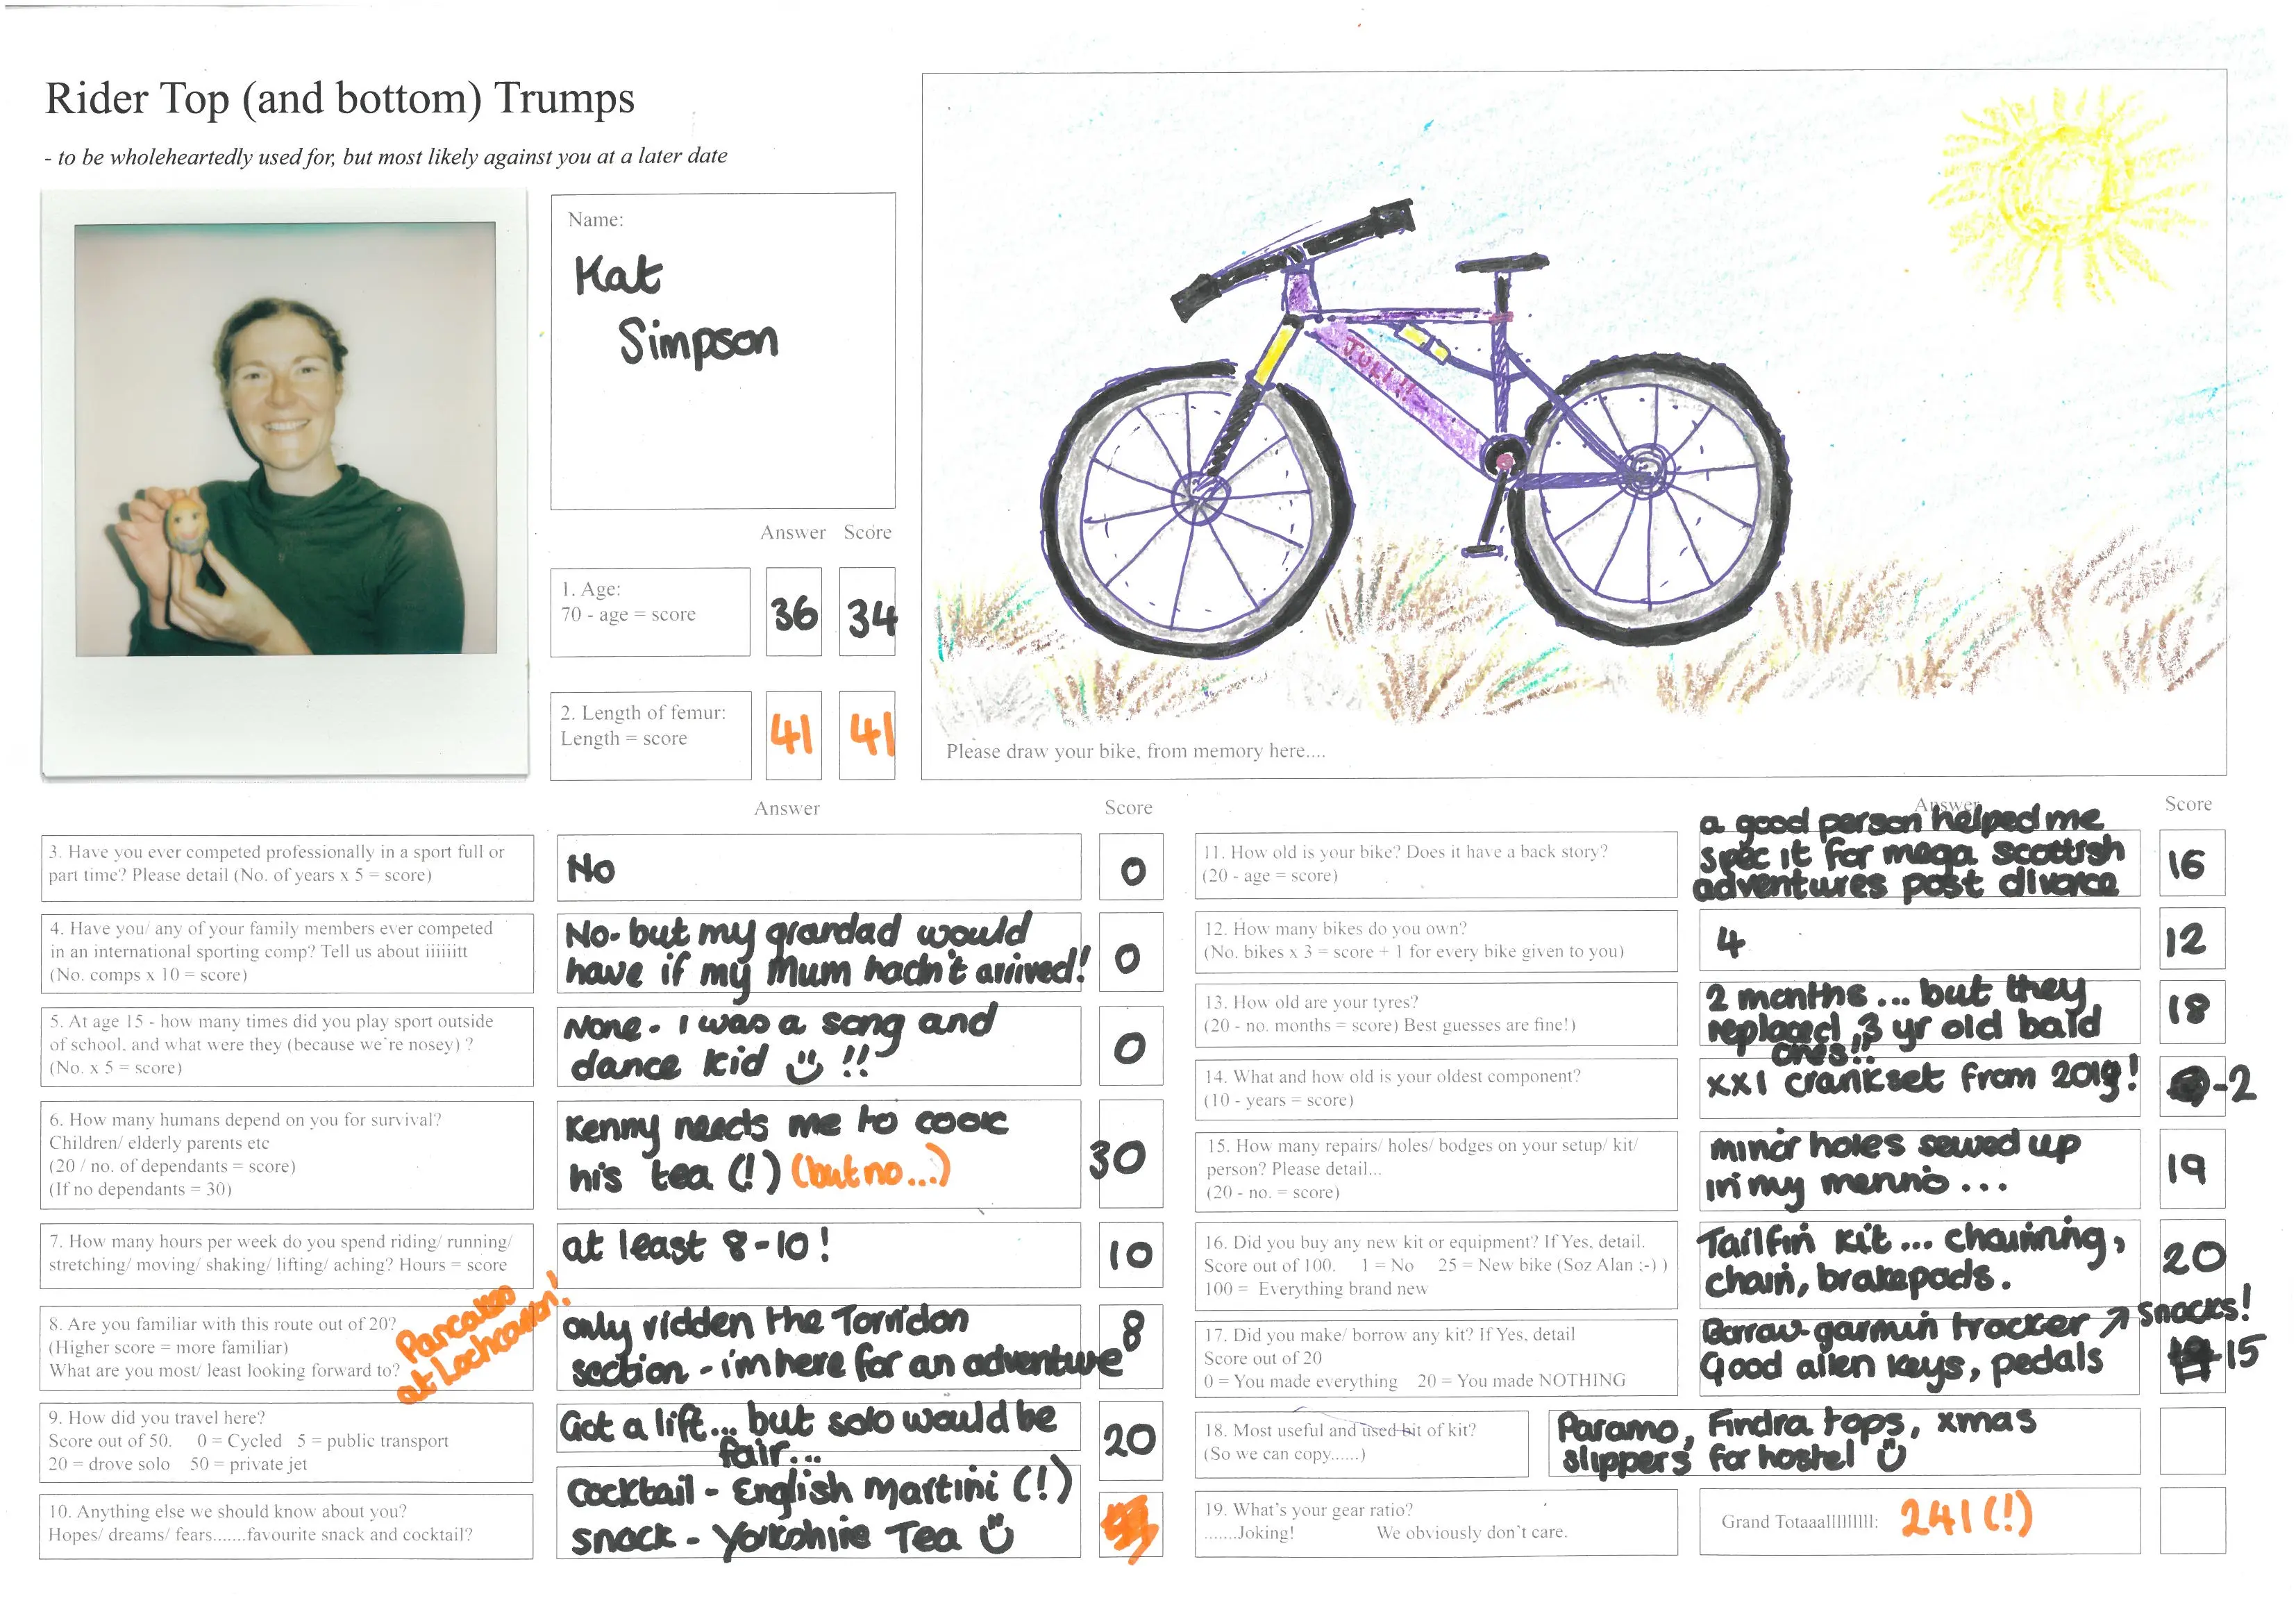 Rider Top (and bottom) Trumps
- to be wholeheartedly used for, but most likely against you at a later date
Name:
Kat
Simpson
Answer Score
1. Age:
70 - age = score
36 34
2. Length of femur:
Length = score
41 41
Please draw your bike, from memory here....
Answer Score
3. Have you ever competed professionally in a sport full or
part time? Please detail (No. of years x 5 = score)
No
0
4. Have you/ any of your family members ever competed
in an international sporting comp? Tell us about iiiiiitt
(No. comps x 10 = score)
No- but my grandad would
have if my Mum hadn't arrived!
0
5. At age 15 - how many times did you play sport outside
of school, and what were they (because we're nosey) ?
(No. x 5 = score)
None - I was a song and
dance kid !!
0
6. How many humans depend on you for survival?
Children/ elderly parents etc
(20 / no. of dependants = score)
(If no dependants = 30)
Kenny needs me to cook
his tea (!) (but no...)
30
7. How many hours per week do you spend riding/ running/
stretching/ moving/ shaking/ lifting/ aching? Hours = score
at least 8-10!
10
8. Are you familiar with this route out of 20?
(Higher score = more familiar)
What are you most/ least looking forward to?
Pancakes
at Lochcarron!
only ridden the Torridon
section - i'm here for an adventure
8
9. How did you travel here?
Score out of 50. 0 = Cycled 5 = public transport
20 = drove solo 50 = private jet
Got a lift... but solo would be
fair...
20
10. Anything else we should know about you?
Hopes/ dreams/ fears.......favourite snack and cocktail?
Cocktail - English Martini (!)
snack - Yorkshire Tea
Answer Score
11. How old is your bike? Does it have a back story?
(20 - age = score)
a good person helped me
spec it for mega scottish
adventures post divorce
16
12. How many bikes do you own?
(No. bikes x 3 = score + 1 for every bike given to you)
4
12
13. How old are your tyres?
(20 - no. months = score) Best guesses are fine!)
2 months... but they
replaced 3 yr old bald
ones!!
18
14. What and how old is your oldest component?
(10 - years = score)
xx1 crankset from 2019!
-2
15. How many repairs/ holes/ bodges on your setup/ kit/
person? Please detail...
(20 - no. = score)
minor holes sewed up
in my merino...
19
16. Did you buy any new kit or equipment? If Yes, detail.
Score out of 100. 1 = No 25 = New bike (Soz Alan ;-) )
100 = Everything brand new
Tailfin kit... chainring,
chain, brakepads.
20
17. Did you make/ borrow any kit? If Yes, detail
Score out of 20
0 = You made everything 20 = You made NOTHING
Borrow- garmin tracker ↗ snacks!
Good allen keys, pedals
15
18. Most useful and used bit of kit?
(So we can copy......)
Paramo, Findra tops, xmas
slippers for hostel
19. What's your gear ratio?
.......Joking! We obviously don't care.
Grand Totaaalllllllll: 241 (!)